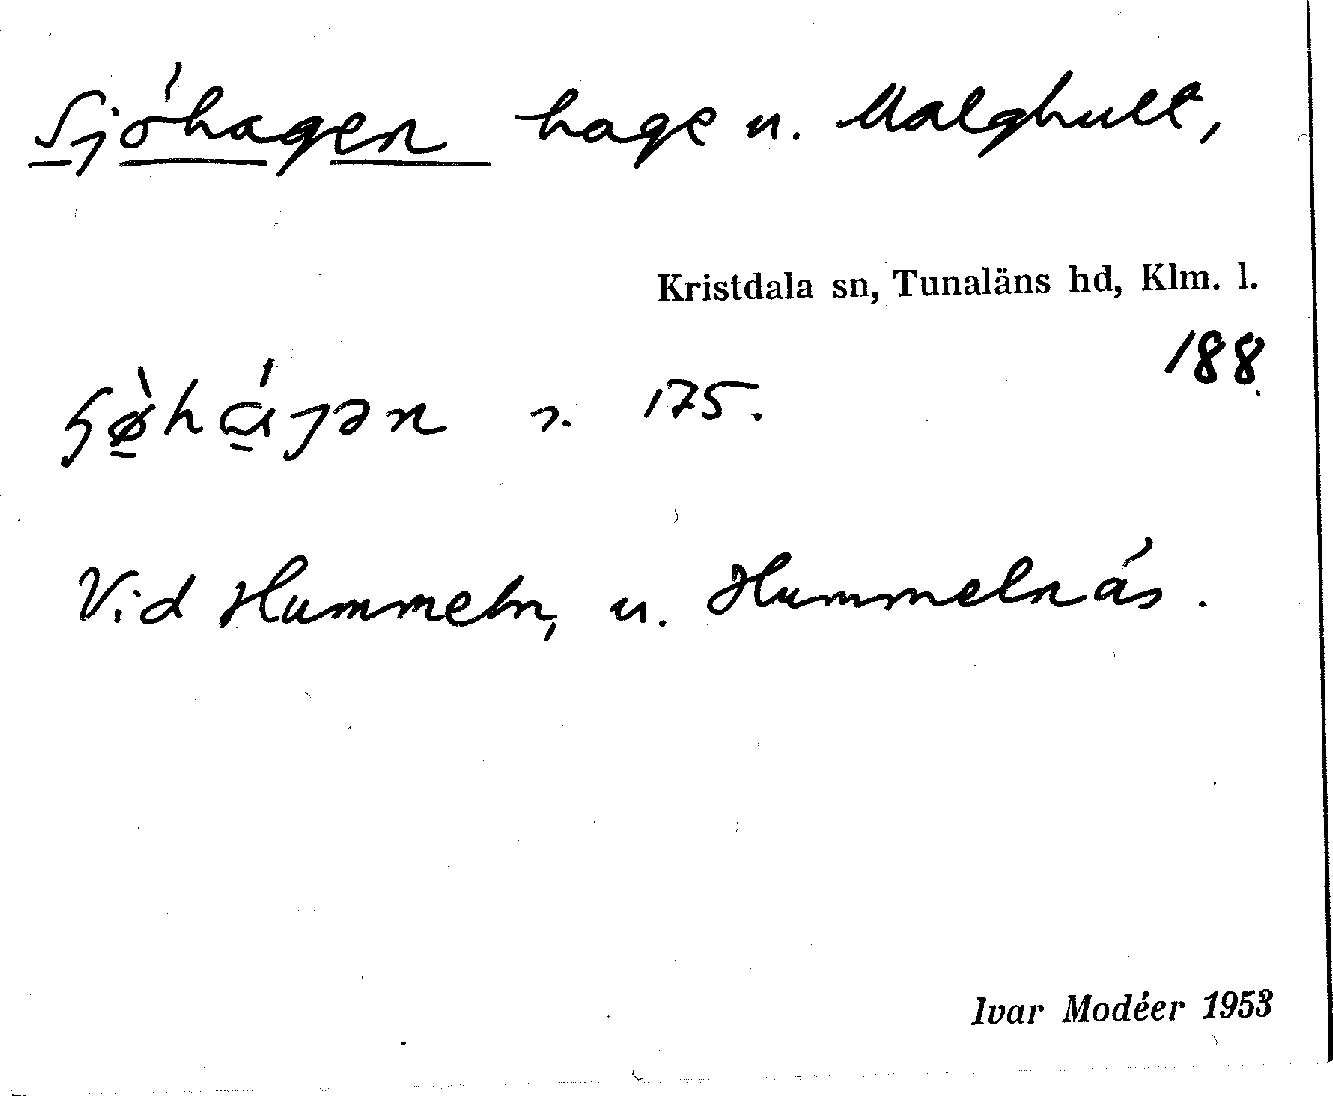 Sjöhagen hage u. Malghult,
Kristdala sn, Tunaläns hd, Klm. l.
188.
175.
Vid Hummeln, u. Hummelnäs.
Ivar Modéer 1953